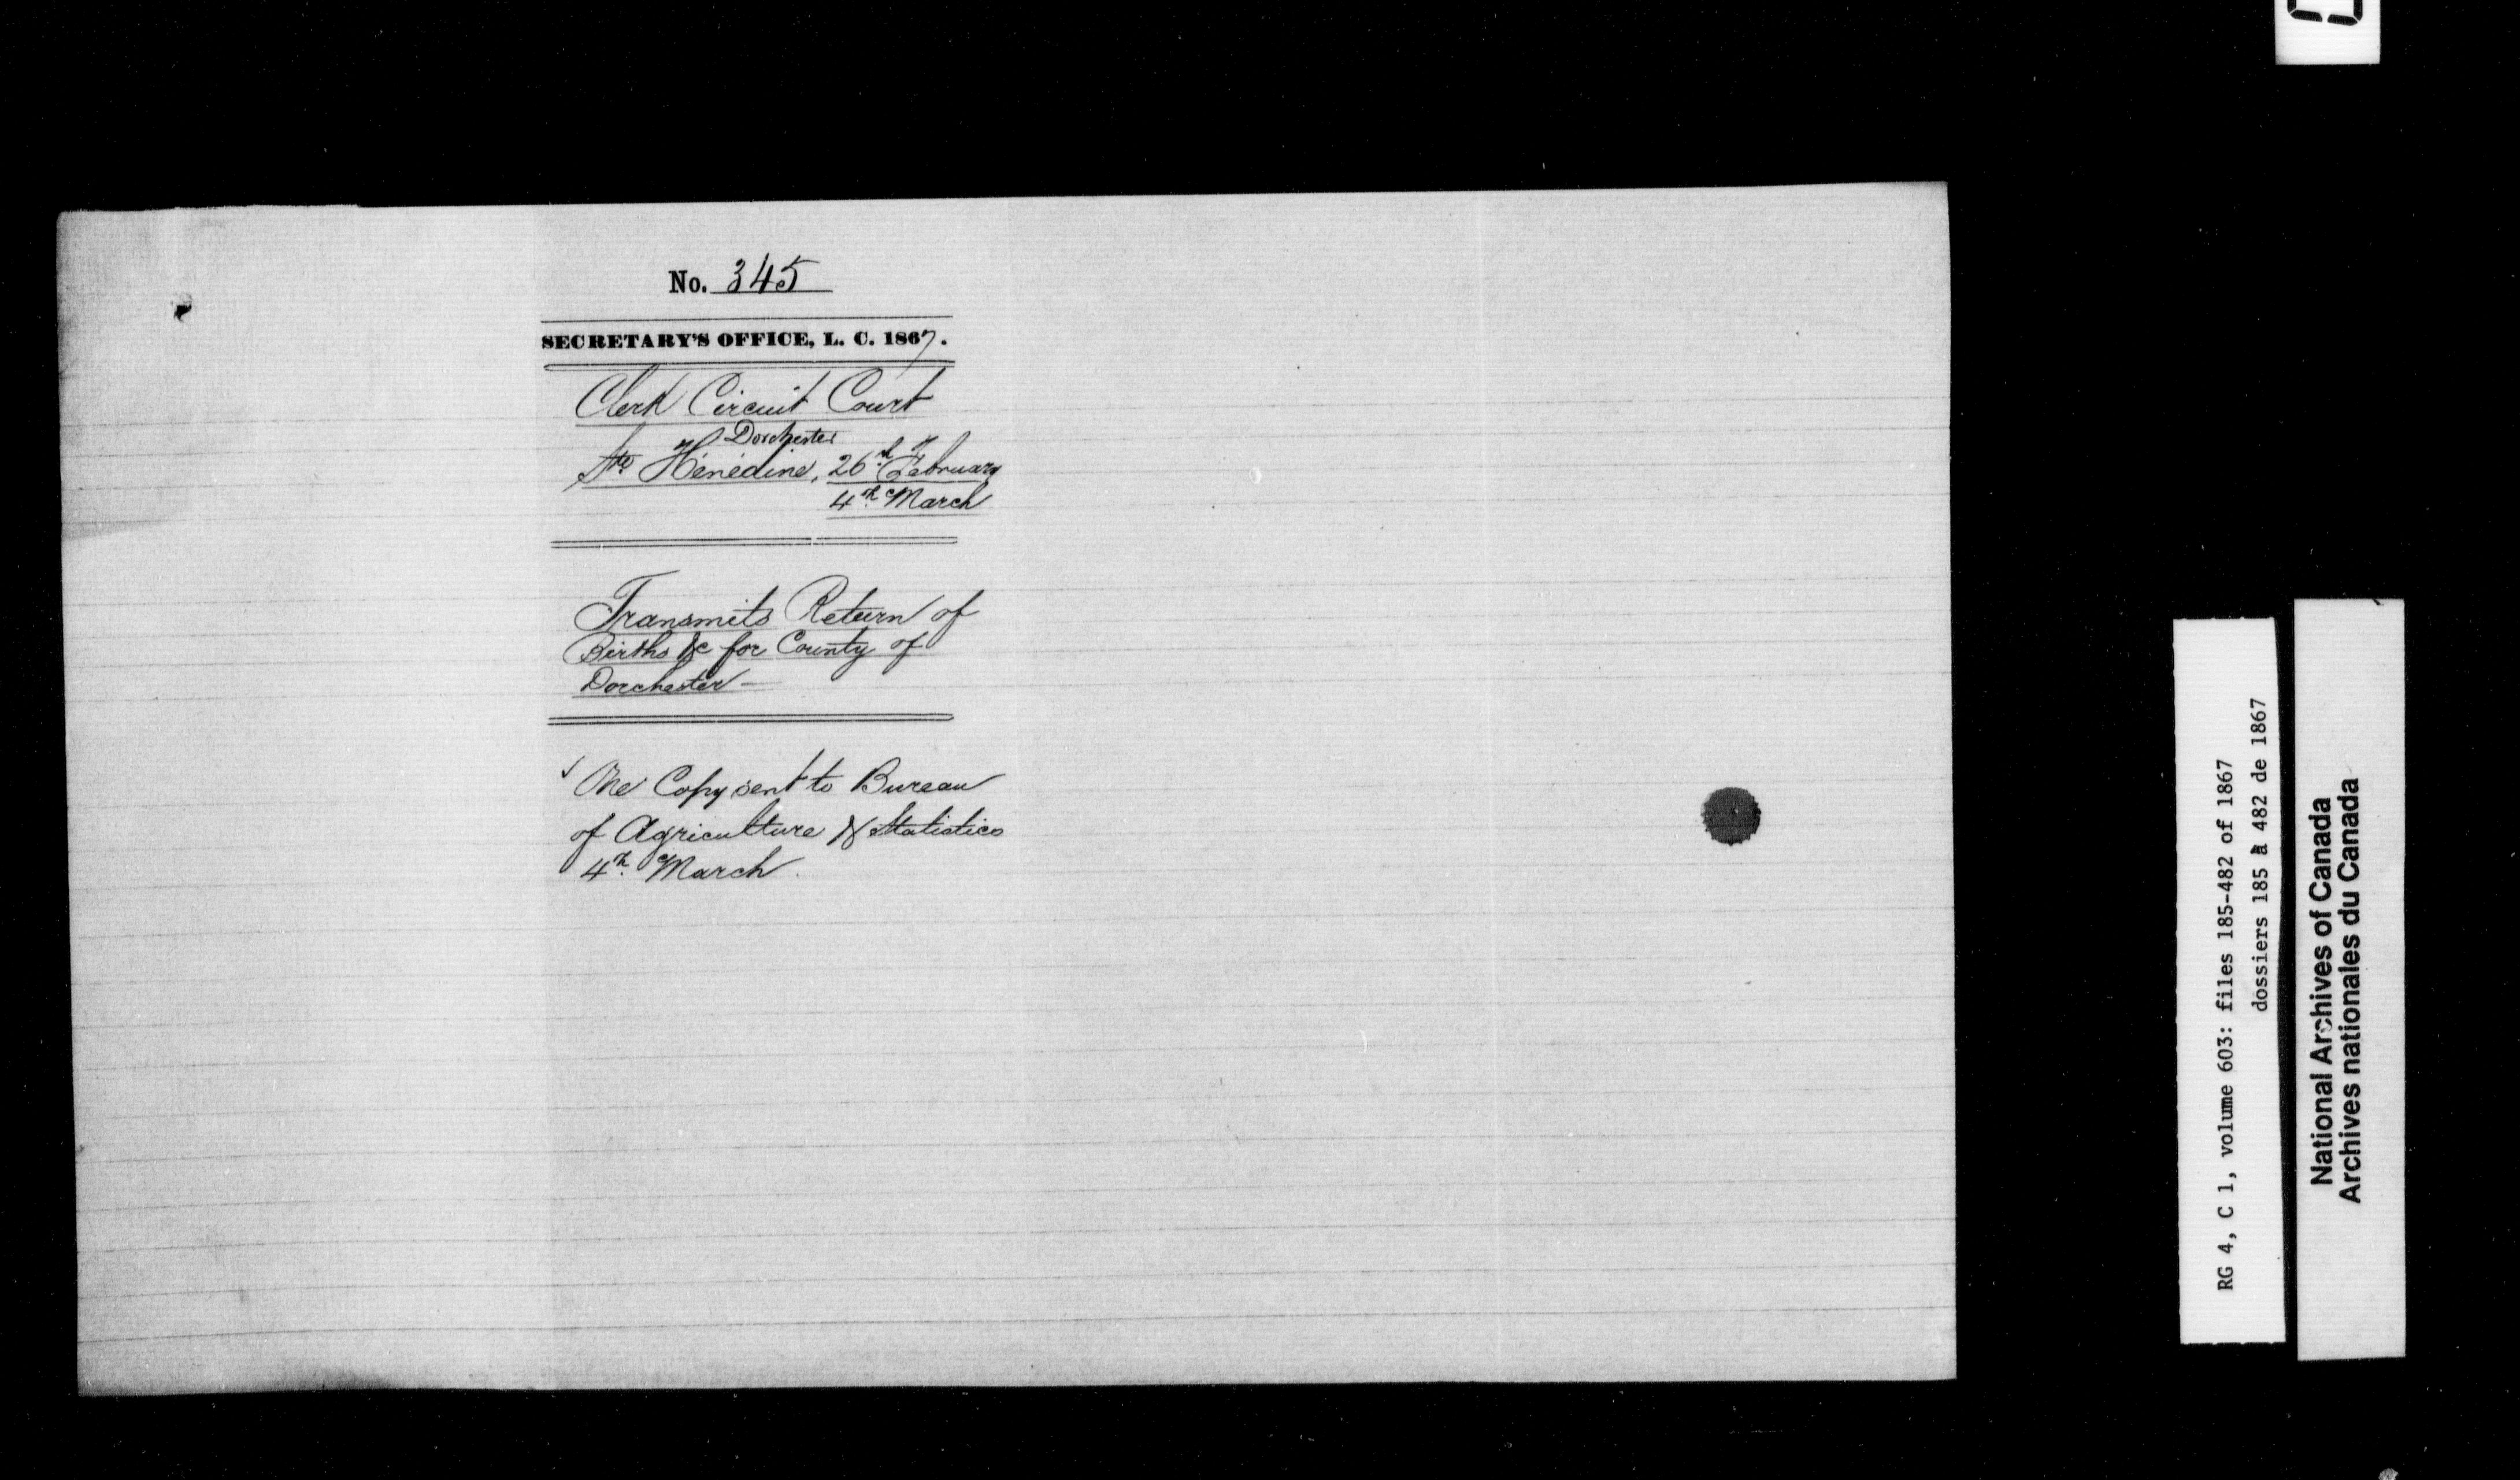 No. 345
SECRETARY'S OFFICE, L. C. 1867.
Clerk Circuit Court
Dorchester
Ste Hénédine, 26th February
4th March
Transmits Return of
Births &c for County of
Dorchester —
One Copy sent to Bureau
of Agriculture & Statistics
4th March.
RG 4, C 1, volume 603: files 185-482 of 1867
dossiers 185 à 482 de 1867
National Archives of Canada
Archives nationales du Canada